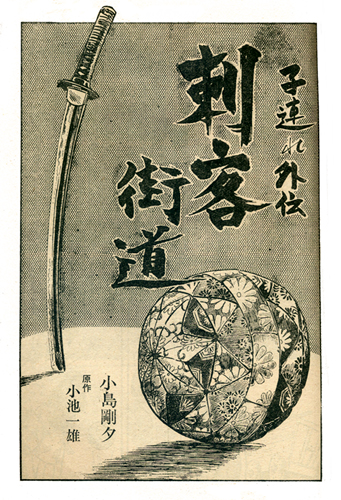 子連れ外伝
刺客
街道
小島剛夕
原作
小池一雄